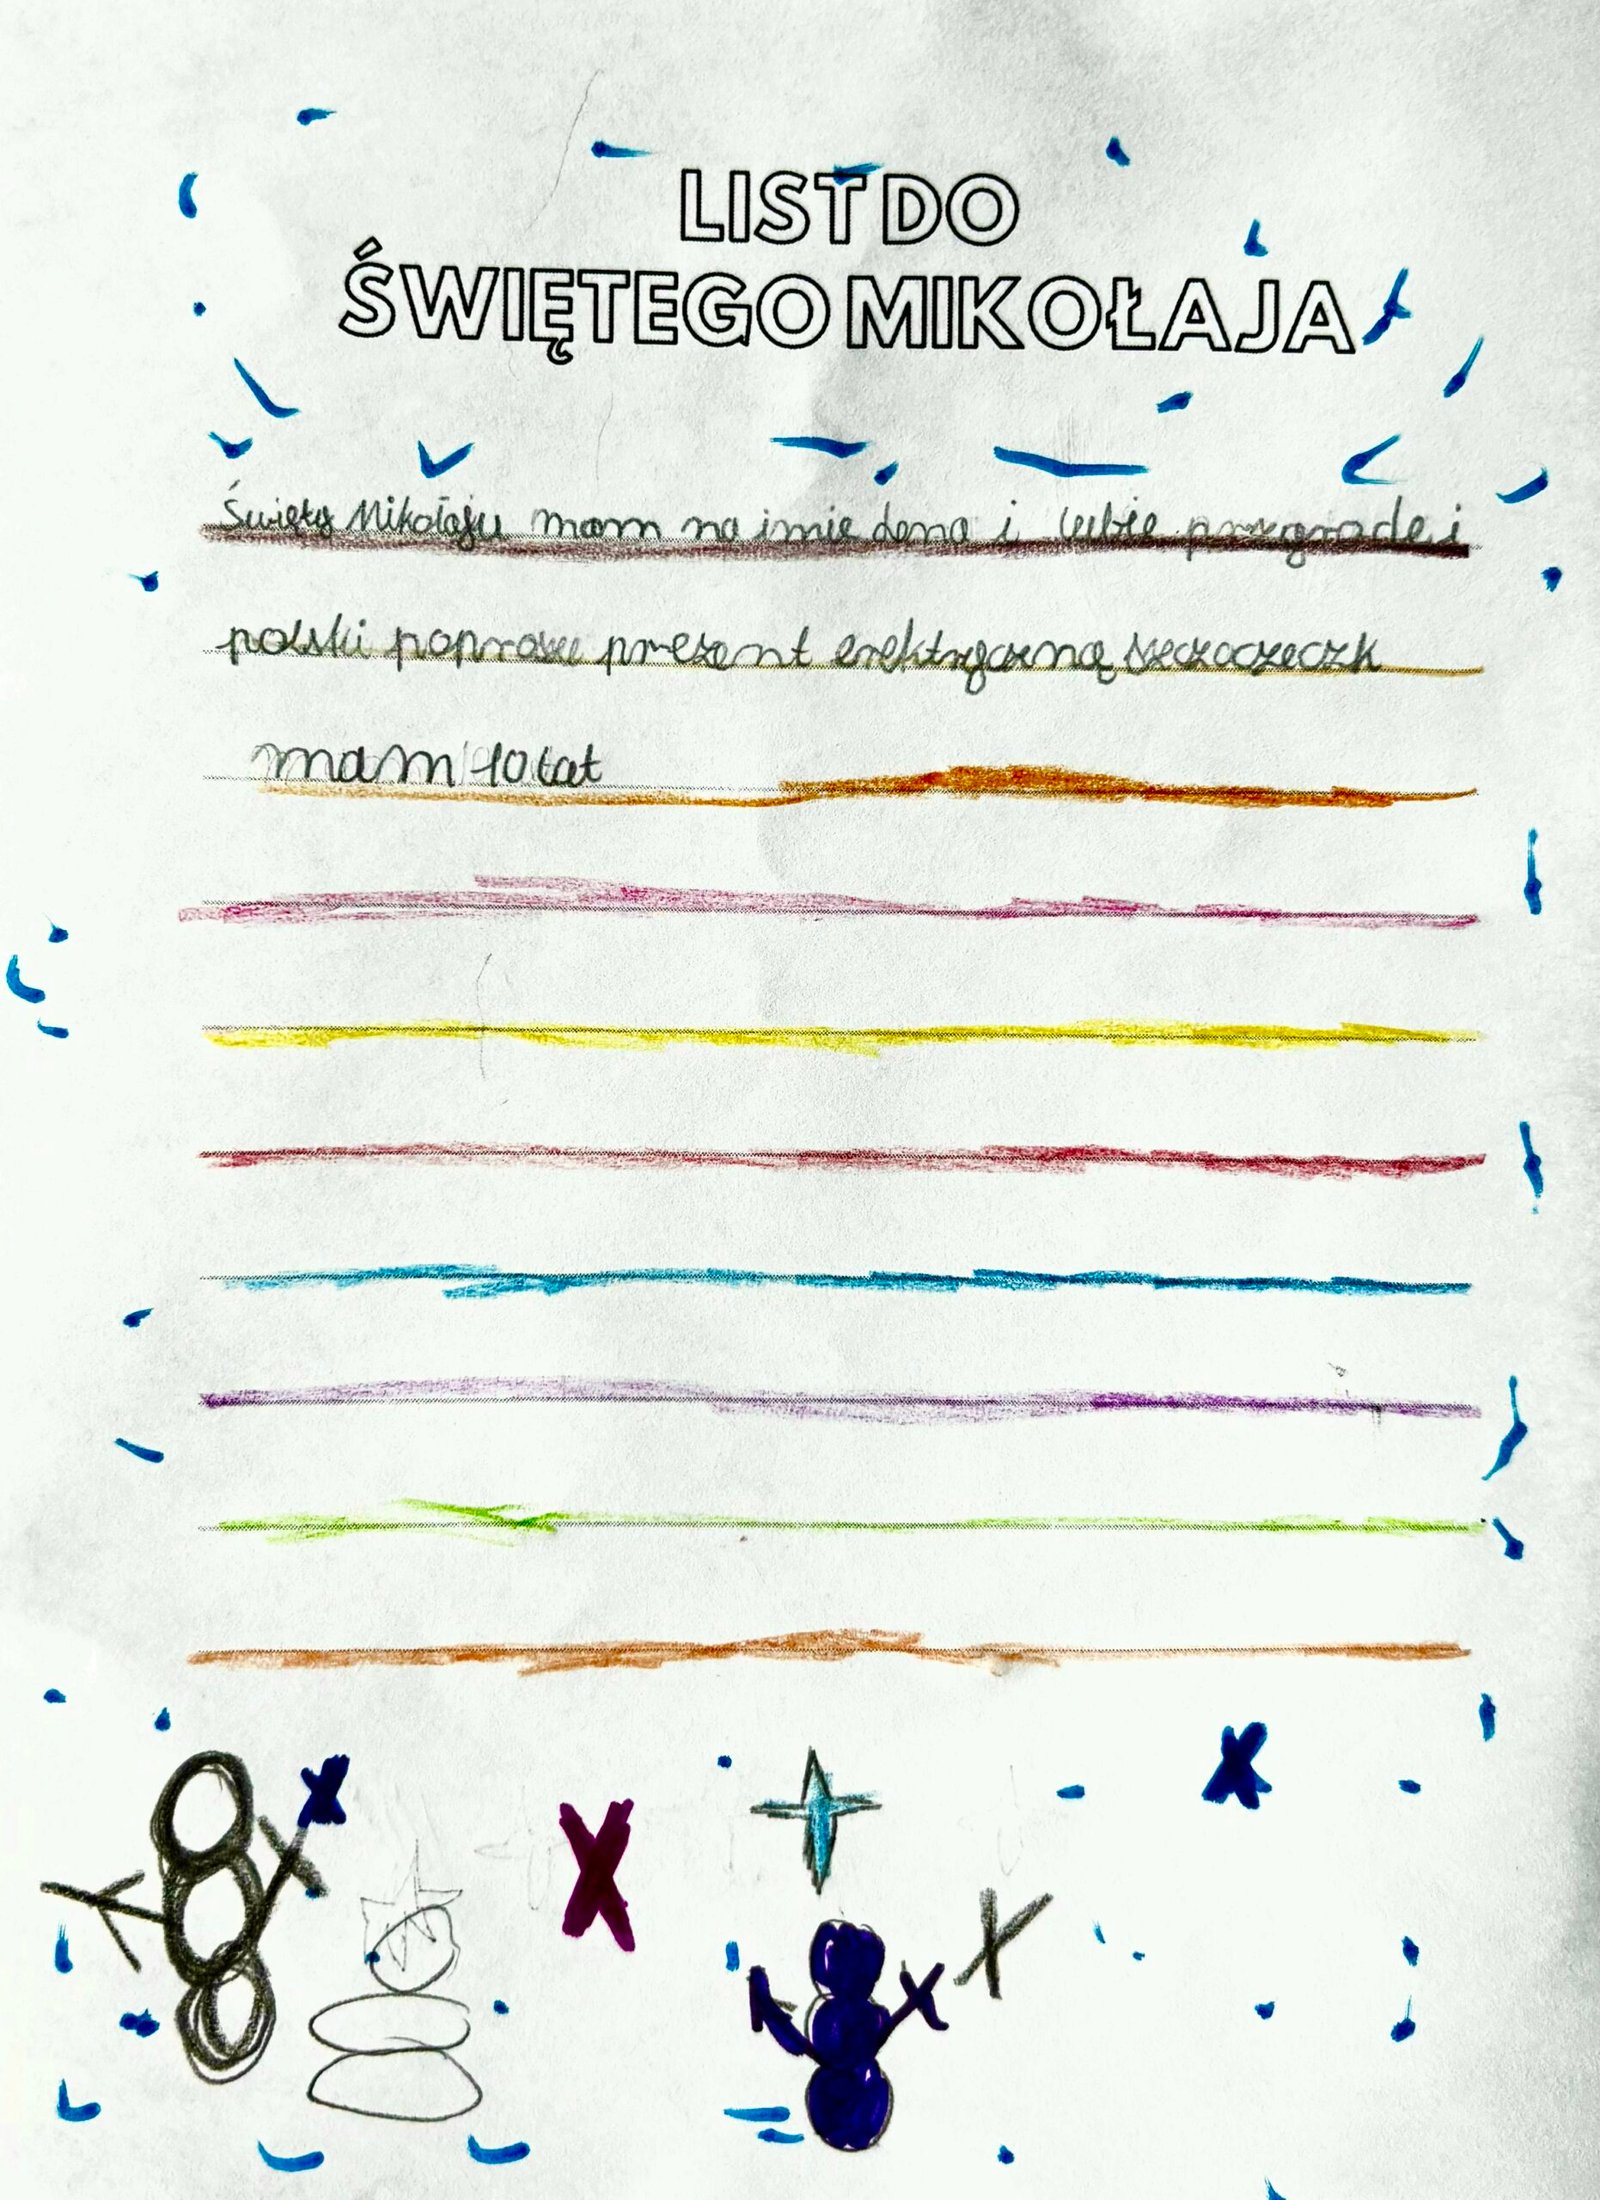 LIST DO
ŚWIĘTEGO MIKOŁAJA
Święty Mikołaju mam na imie Lena i lubie przyrode i
polski poprosze prezent elektryczną szczoczeczk
mam 10 lat